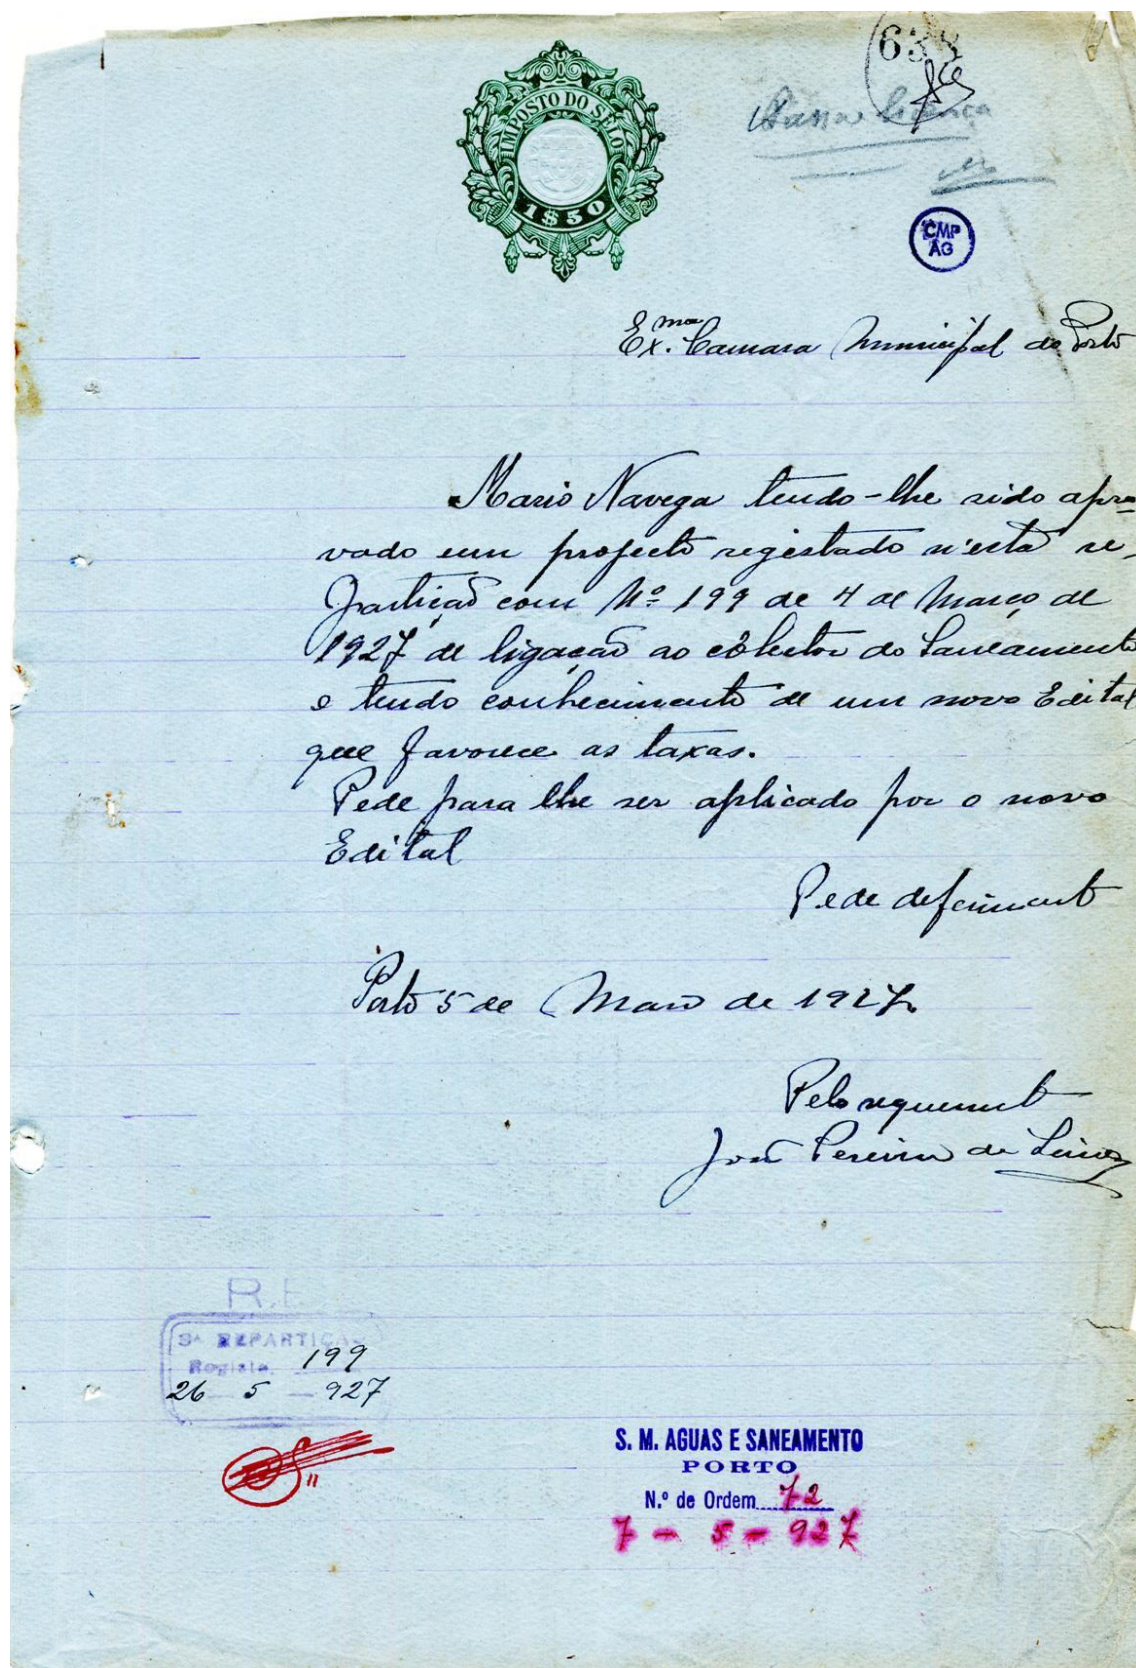 638
IMPOSTO DO SÊLO
1$50
licença
CMP
AG
Ex.ma Camara Municipal do Porto
Mario Navega tendo-lhe sido apro
vado um projecto registado n'esta re,
partição com Nº 199 de 4 de Março de
1927 de ligação ao colector do Saneamento
e tendo conhecimento de um novo Edital
que favorece as taxas.
Pede para lhe ser aplicado por o novo
Edital
Pede deferimento
Porto 5 de Maio de 1927.
Pelo requerente
João Pereira de
R.E
3ª REPARTIÇÃO
Registo 199
26 5 - 927
S. M. AGUAS E SANEAMENTO
PORTO
N.º de Ordem 72
7 - 5 - 927